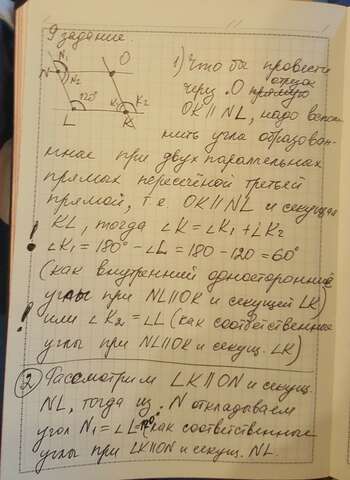 9 задание.
N N₁ N₂ O
120° K₁ K₂
L K
1) Что бы провести
через .O прямую отрезок
OK || NL, надо вспом-
нить угла образован-
ные при двух параллельных
прямых пересечёной третьей
прямой, т.е OK||NL и секущая
KL, тогда ∠K = ∠K₁ + ∠K₂
∠K₁ = 180° - ∠L = 180 - 120 = 60°
(как внутренний односторонние
углы при NL||OK и секущей LK)
или ∠K₂ = ∠L (как соответственные
углы при NL||OK и секущ. LK)
② Рассмотрим LK||ON и секущ.
NL, тогда из .N откладываем
угол N₁ = ∠L = 120° (как соответственные
углы при LK||ON и секущ. NL.